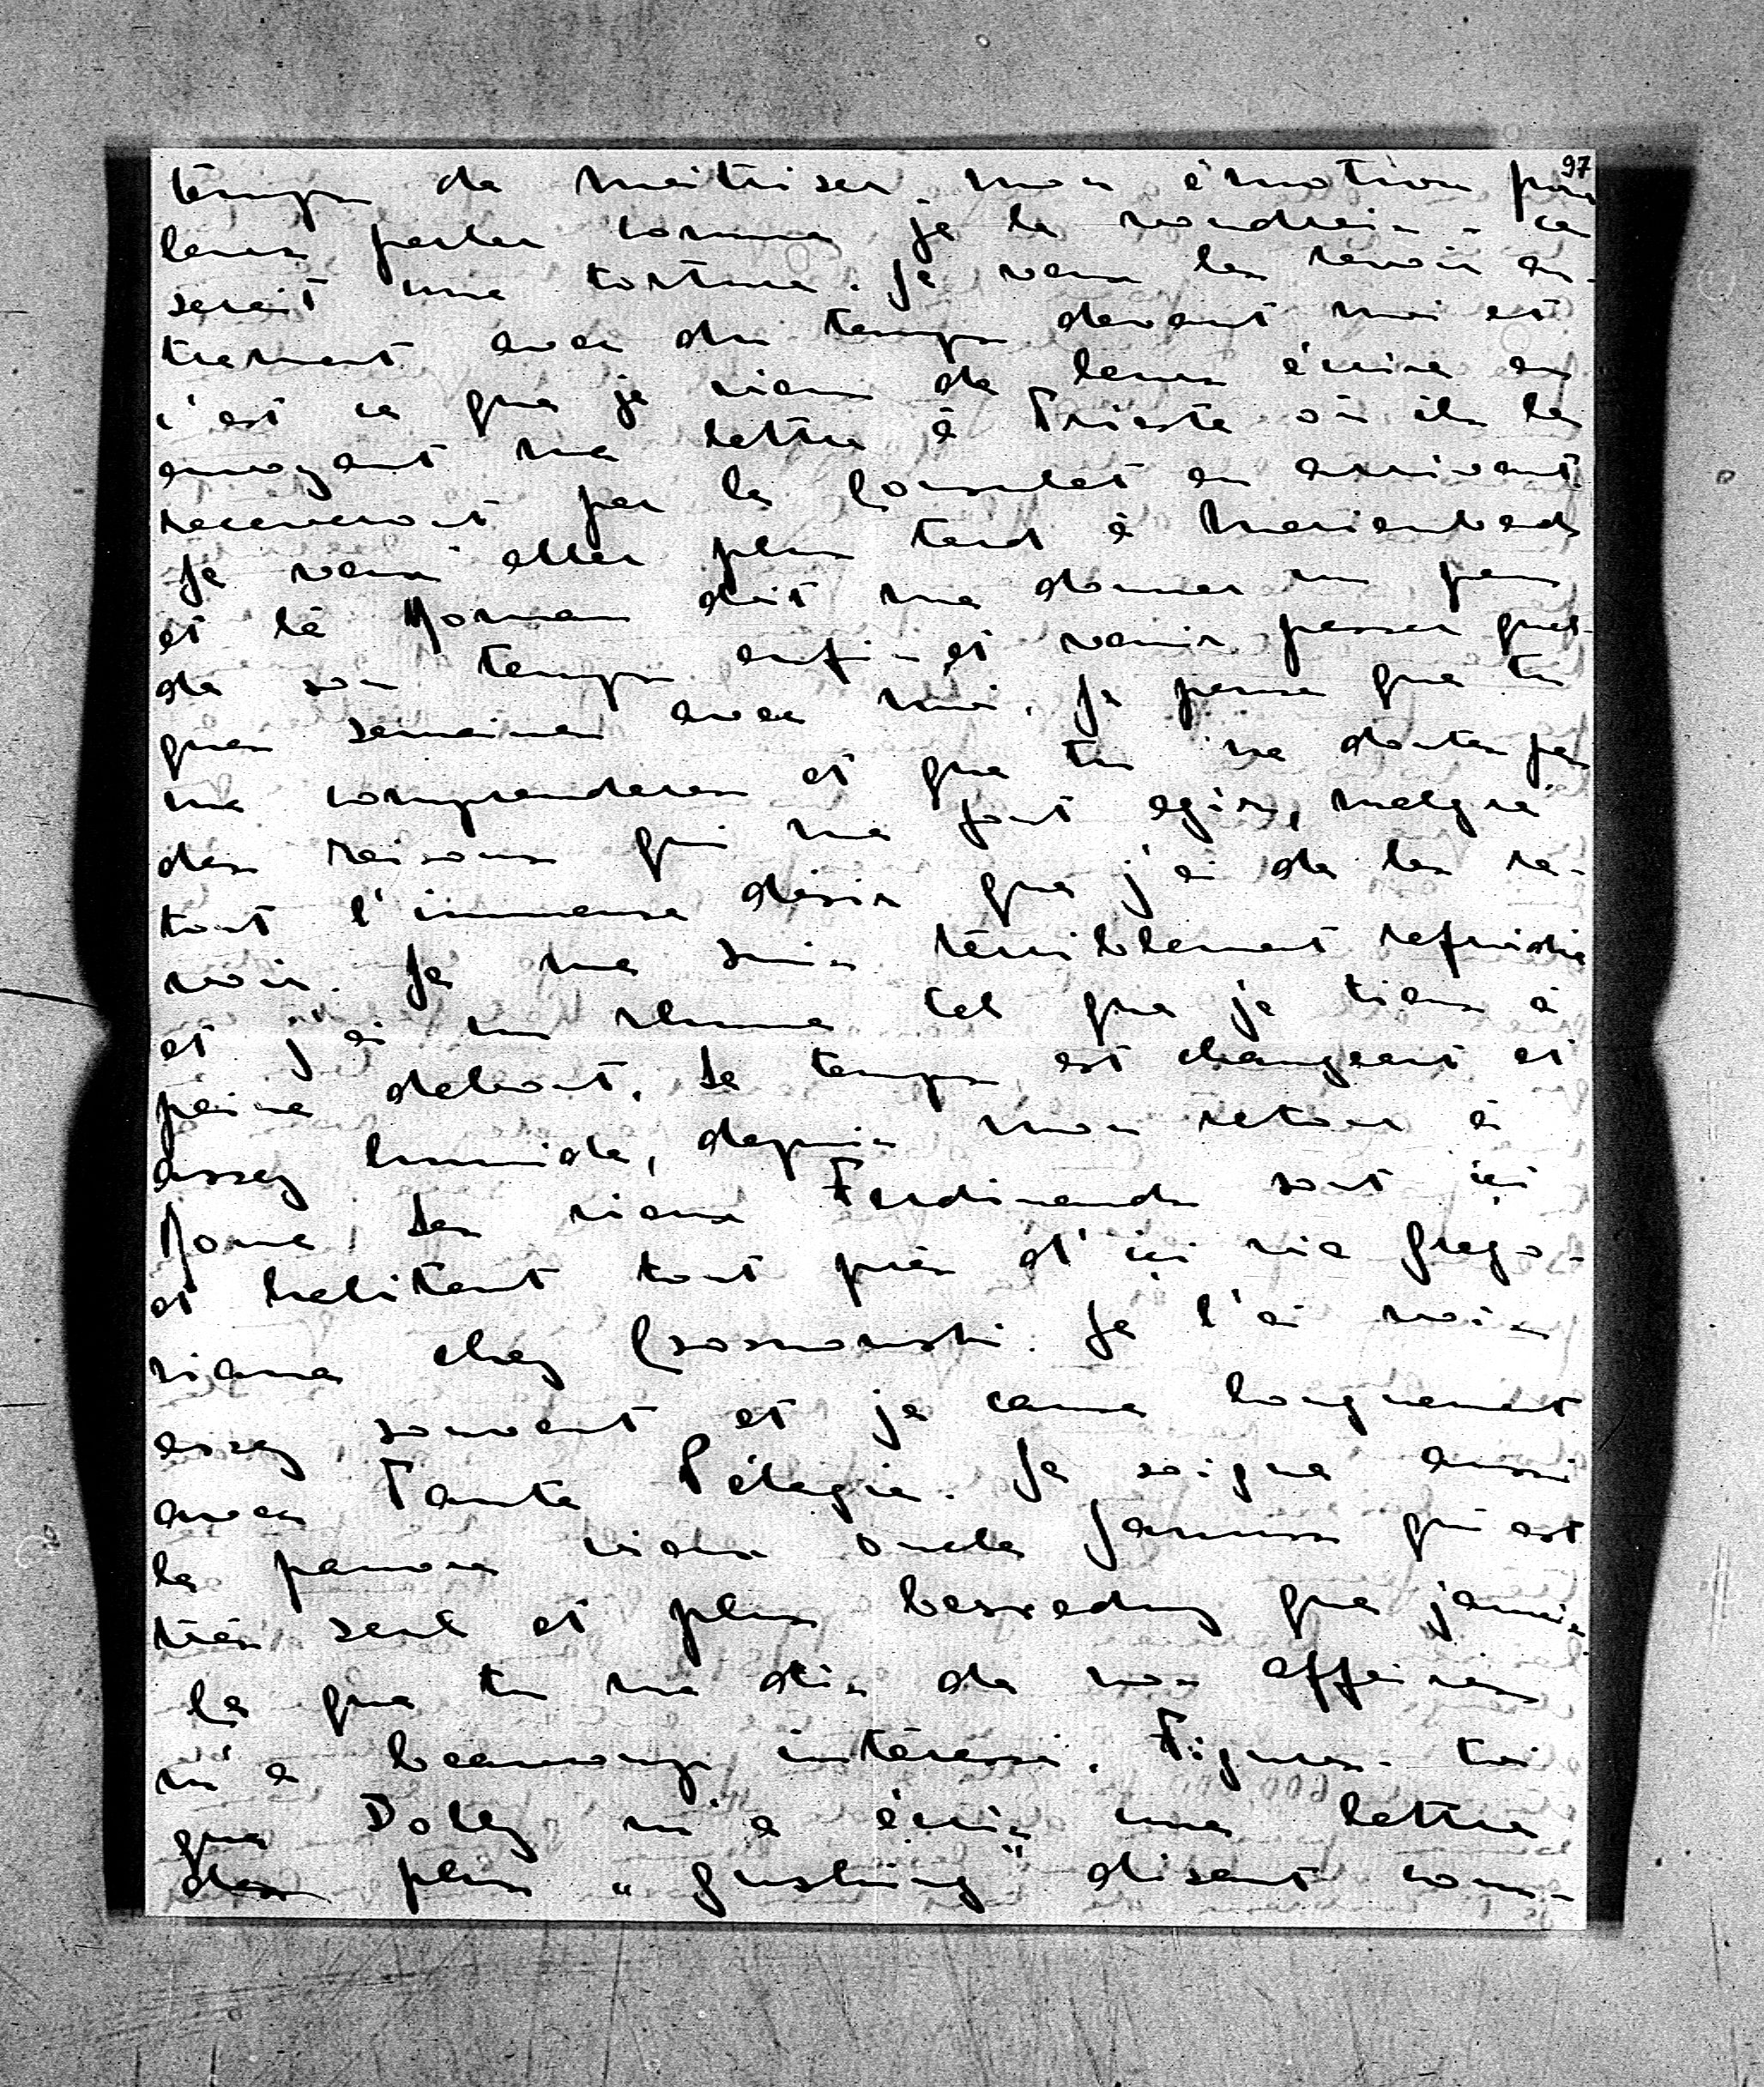 97
temps de maitriser mon émotion pour
leur parler comme je le voudrais - ce
serait une torture. Je veux les revoir au-
trement avec du temps devant moi et
c'est ce que je viens de leur écrire en
envoyant ma lettre à Trieste où ils la
receveront par le Consulat en arrivant.
Je veux aller plus tard à Marienbad
et là Roman doit me donner un peu
de son temps enfin et venir passer quel-
ques semaines avec moi. Je pense que tu
me comprenderas et que tu ne doutes pas
des raisons qui me font agir, malgré
tout l'immense désir que j'ai de les re-
voir. Je me suis térriblement refroidie
et j'ai un rhume tel que je tiens à
peine debout. Le temps est changeant et
assez humide, depuis mon retour à
Rome. Les vieux Ferdinands sont ici
et habitent tout près d'ici via Grego-
riana chez Czosnowski. Je l'ai vois
assez souvent et je cause longuement
avec Tante Pélagie. Je soigne aussi
le pauvre vieux oncle Janusz qui est
très seul et plus besradny que jamais.
Ce que tu me dis de nos affaires
m'a beaucoup intéressé. Figures-toi
que Dolly m'a écris une lettre
des plus „gushing" disant com-